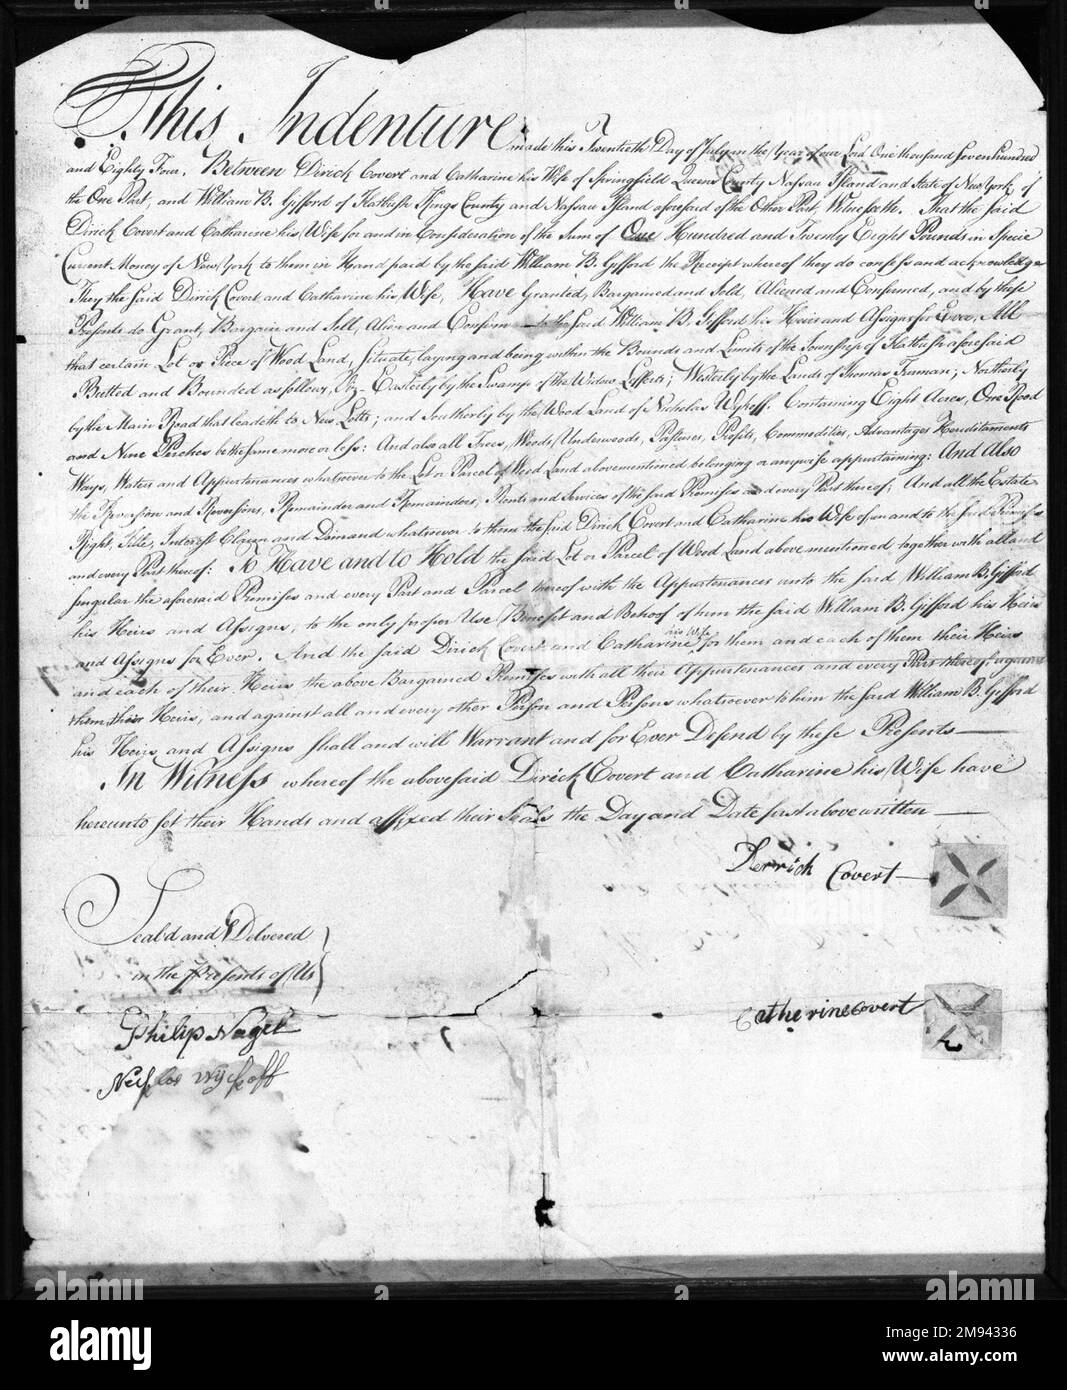 This Indenture made this Twentieth Day of July in the Year of our Lord One thousand Seven hundred
and Eighty Four. Between Dirick Covert and Catharine his Wife of Springfield Queens County Nassau Island and State of New York of
the One Part, and William B. Gifford of Flatbush Kings County and Nassau Island aforesaid of the Other Part Witnesseth. That the said
Dirick Covert and Catharine his Wife for and in Consideration of the Sum of One Hundred and Twenty Eight Pounds in Specie
Current Money of New York to them in Hand paid by the said William B. Gifford the Receipt whereof they do confess and acknowledge
They the said Dirick Covert and Catharine his Wife, Have Granted, Bargained and Sold, Aliened and Confirmed, and by these
Presents do Grant, Bargain and Sell, Alien and Confirm to the said William B. Gifford his Heirs and Assigns for Ever, All
that certain Lot or Piece of Wood Land, situate, laying and being within the Bounds and Limits of the Township of Flatbush aforesaid
Butted and Bounded as follows, Viz Easterly by the Swamp of the Widow Lefferts; Westerly by the Lands of Thomas Truman; Northerly
by the Main Road that leadeth to New Lotts; and Southerly by the Wood Land of Nicholas Wykoff. Containing Eight Acres, One Rood
and Nine Perches be the same more or less: And also all Trees, Woods, Underwoods, Pastures, Profits, Commodities, Advantages Hereditaments
Ways, Waters and Appurtenances whatsoever to the Lot or Parcel of Wood Land above mentioned belonging or anywise appurtaining: And Also
the Reversion and Reversions, Remainder and Remainders, Rents and Services of the said Premises and every Part thereof; And all the Estate
Right, Title, Interest Claim and Demand whatsoever to them the said Dirick Covert and Catharine his Wife of in and to the said Premises
and every Part thereof: To Have and to Hold the said Lot or Parcel of Wood Land above mentioned together with all and
singular the aforesaid Premises and every Part and Parcel thereof with the Appurtenances unto the said William B. Gifford
his Heirs and Assigns, to the only proper Use Benefit and Behoof of him the said William B. Gifford his Heirs
and Assigns for Ever. And the said Dirick Covert and Catharine his Wife for them and each of them their Heirs
and each of their Heirs the above Bargained Premises with all their Appurtenances and every Part thereof, against
them their Heirs, and against all and every other Person and Persons whatsoever to him the said William B. Gifford
his Heirs and Assigns shall and will Warrant and for Ever Defend by these Presents
In Witness whereof the abovesaid Dirick Covert and Catharine his Wife have
hereunto set their Hands and affixed their Seals the Day and Date first above written
Derrick Covert
Seal'd and Delvered
in the Presents of Us
Catherine covert
Philip Nagel
Wyckoff
alamy
Image ID: 2M94336
www.alamy.com